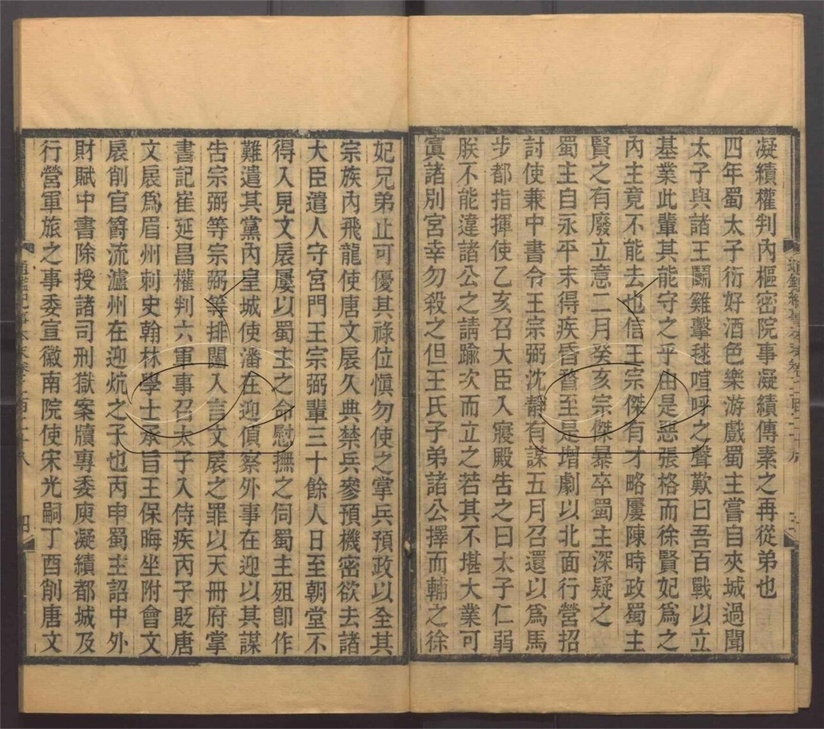 凝績權判內樞密院事凝績傳素之再從弟也
四年蜀太子衍好酒色樂游戲蜀主嘗自夾城過聞
太子與諸王鬭雞擊毬喧呼之聲歎曰吾百戰以立
基業此輩其能守之乎由是惡張格而徐賢妃爲之
內主竟不能去也信王宗傑有才略屢陳時政蜀主
賢之有廢立意二月癸亥宗傑暴卒蜀主深疑之
蜀主自永平末得疾昏瞀至是增劇以北面行營招
討使兼中書令王宗弼沈靜有謀五月召還以爲馬
步都指揮使乙亥召大臣入寢殿告之曰太子仁弱
朕不能違諸公之請踰次而立之若其不堪大業可
寘諸別宮幸勿殺之但王氏子弟諸公擇而輔之徐
妃兄弟止可優其祿位愼勿使之掌兵預政以全其
宗族內飛龍使唐文扆久典禁兵參預機密欲去諸
大臣遣人守宮門王宗弼輩三十餘人日至朝堂不
得入見文扆屢以蜀主之命慰撫之伺蜀主殂卽作
難遣其黨內皇城使潘在迎偵察外事在迎以其謀
告宗弼等宗弼等排闥入言文扆之罪以天冊府掌
書記崔延昌權判六軍事召太子入侍疾丙子貶唐
文扆爲眉州刺史翰林學士承旨王保晦坐附會文
扆削官爵流瀘州在迎炕之子也丙申蜀主詔中外
財賦中書除授諸司刑獄案牘專委庾凝績都城及
行營軍旅之事委宣徽南院使宋光嗣丁酉削唐文